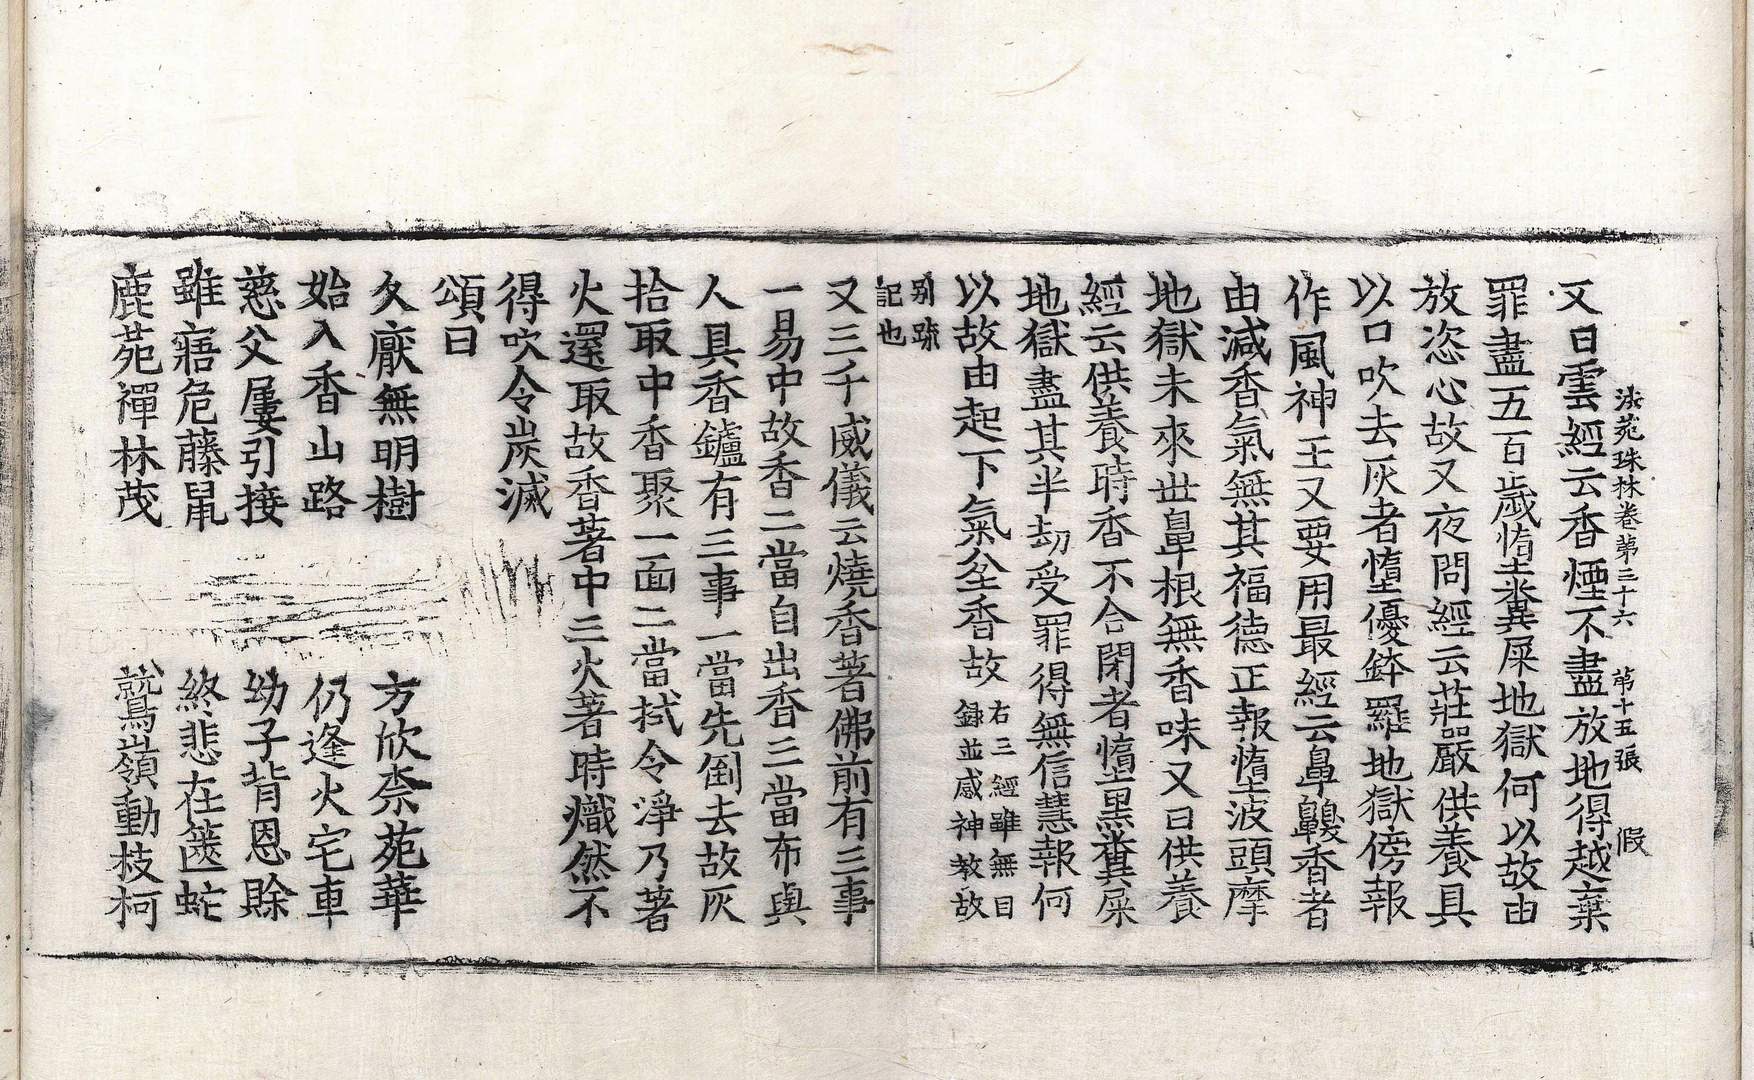 法苑珠林卷第三十六　第十五張　假
又日雲經云香煙不盡放地得越棄
罪盡五百歲墮糞屎地獄何以故由
放恣心故又夜問經云莊嚴供養具
以口吹去灰者墮優鉢羅地獄傍報
作風神王又要用最經云鼻齅香者
由減香氣無其福德正報墮波頭摩
地獄未來世鼻根無香味又曰供養
經云供養時香不合閉者墮黑糞屎
地獄盡其半劫受罪得無信慧報何
以故由起下氣坌香故
右三經雖無目
錄並感神教故
別疏
記也
又三千威儀云燒香著佛前有三事
一易中故香二當自出香三當布與
人具香鑪有三事一當先倒去故灰
拾取中香聚一面二當拭令淨乃著
火還取故香著中三火著時熾然不
得吹令炭滅
頌曰
久厭無明樹　方欣柰苑華
始入香山路　仍逢火宅車
慈父屢引接　幼子背恩賒
雖寤危藤鼠　終悲在篋蛇
鹿苑禪林茂　鷲嶺動枝柯